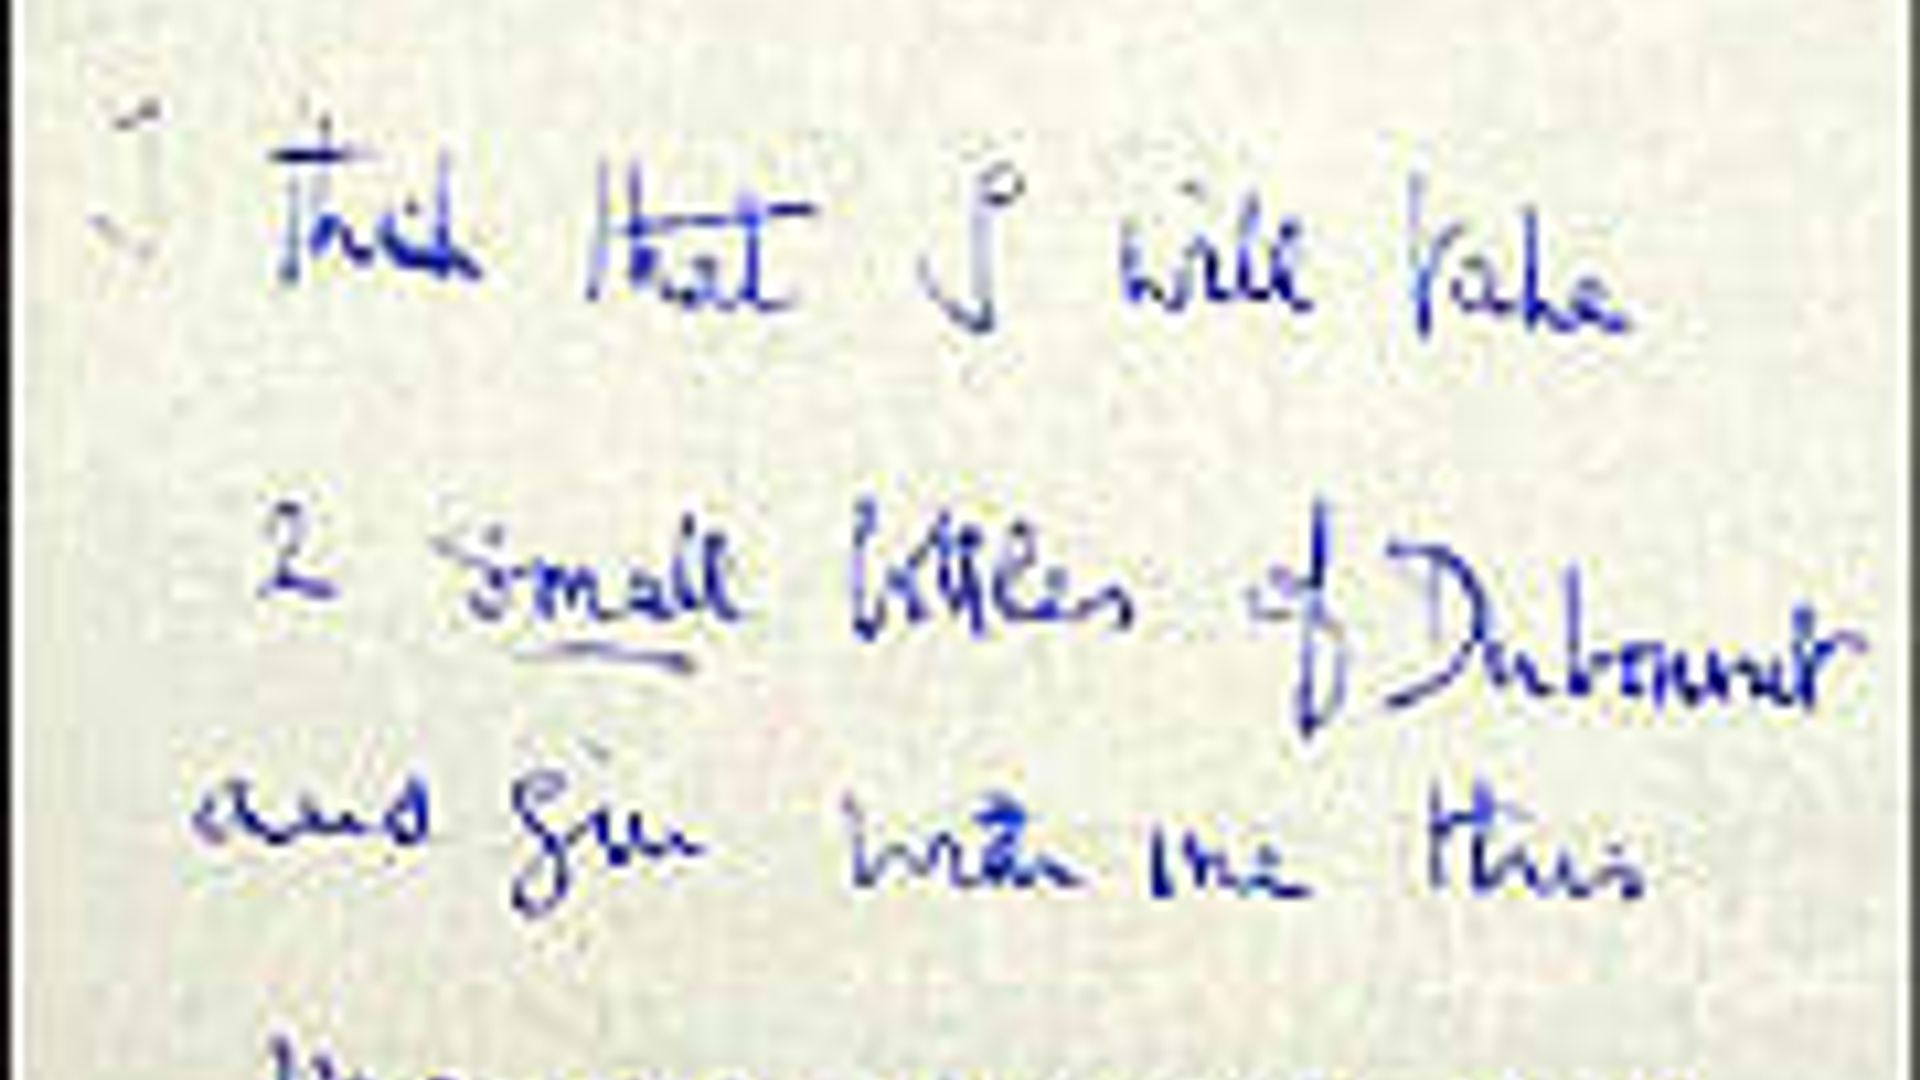 I think that I will take
2 small bottles of Dubonnet
and gin with me this